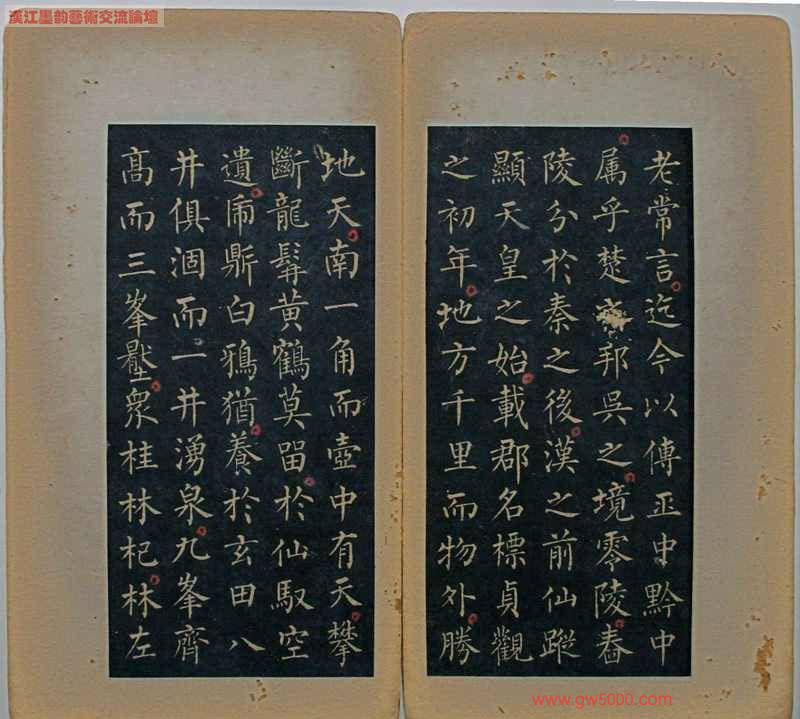 漢江墨韵藝術交流論壇
老常言迄今以傳中黔中
属乎楚邦吳之境零陵舂
陵分於秦之後漢之前仙蹤
顯天皇之始載郡名標貞觀
之初年地方千里而物外勝
地天南一角而壺中有天攀
斷龍髯黃鶴莫留於仙馭空
遺帝鼎白鴉猶養於玄田八
井俱涸而一井湧泉九峯齊
高而三峯壓衆桂林杞林左
www.gw5000.com